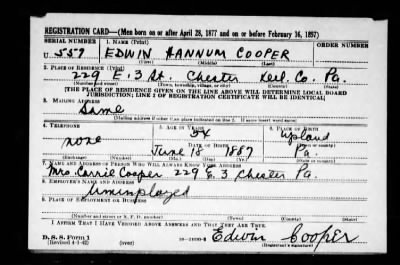 REGISTRATION CARD—(Men born on or after April 28, 1877 and on or before February 16, 1897)
SERIAL NUMBER 1. NAME (Print) ORDER NUMBER
U 559 EDWIN HANNUM COOPER
(First) (Middle) (Last)
2. PLACE OF RESIDENCE (Print)
229 E. 3 St. Chester Del. Co. Pa.
(Number and street) (Town, township, village, or city) (County) (State)
[THE PLACE OF RESIDENCE GIVEN ON THE LINE ABOVE WILL DETERMINE LOCAL BOARD
JURISDICTION; LINE 2 OF REGISTRATION CERTIFICATE WILL BE IDENTICAL]
3. MAILING ADDRESS
Same
[Mailing address if other than place indicated on line 2. If same insert word same]
4. TELEPHONE 5. AGE IN YEARS 6. PLACE OF BIRTH
none 54 Upland
DATE OF BIRTH
June 18 1887 Pa.
(Exchange) (Number) (Mo.) (Day) (Yr.)
7. NAME AND ADDRESS OF PERSON WHO WILL ALWAYS KNOW YOUR ADDRESS
Mrs. Carrie Cooper 229 E. 3 Chester Pa.
8. EMPLOYER'S NAME AND ADDRESS
Unemployed
9. PLACE OF EMPLOYMENT OR BUSINESS
(Number and street or R. F. D. number) (Town) (County) (State)
I AFFIRM THAT I HAVE VERIFIED ABOVE ANSWERS AND THAT THEY ARE TRUE.
D. S. S. Form 1
(Revised 4-1-42) (over) Edwin Cooper
(Registrant's signature)